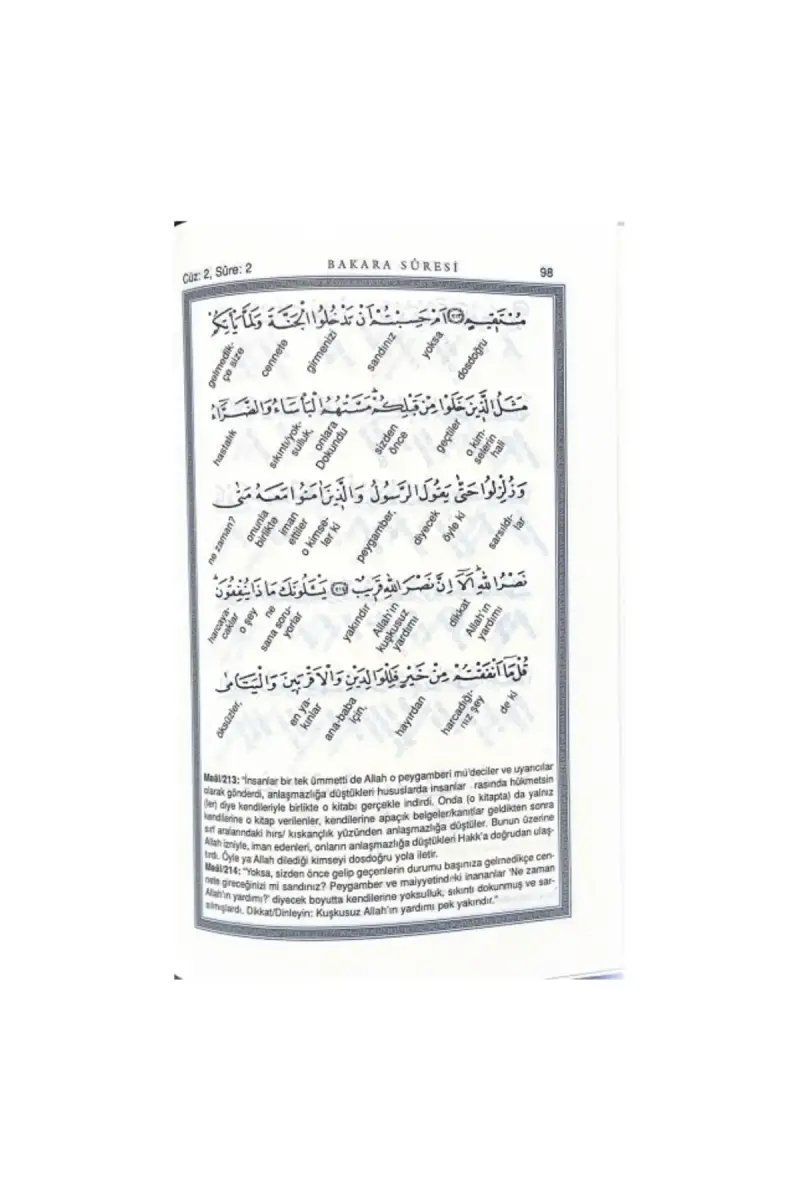 Cüz: 2, Sûre: 2 BAKARA SÛRESİ 98
مُسْتَقِيمٍ ﴿٢١٣﴾ اَمْ حَسِبْتُمْ اَنْ تَدْخُلُوا الْجَنَّةَ وَلَمَّا يَأْتِكُمْ
dosdoğru yoksa sandınız girmenizi cennete gelmedik-çe size
مَثَلُ الَّذِينَ خَلَوْا مِنْ قَبْلِكُمْ مَسَّتْهُمُ الْبَأْسَاءُ وَالضَّرَّاءُ
o kim-selerin hali geçtiler sizden önce onlara Dokundu sıkıntı/yok-sulluk, hastalık
وَزُلْزِلُوا حَتّٰى يَقُولَ الرَّسُولُ وَالَّذِينَ اٰمَنُوا مَعَهُ مَتٰى
sarsıldı-lar öyle ki diyecek peygamber, o kimse-ler ki iman ettiler onunla birlikte ne zaman?
نَصْرُ اللّٰهِ اَلَا اِنَّ نَصْرَ اللّٰهِ قَرِيبٌ ﴿٢١٤﴾ يَسْـَٔلُونَكَ مَاذَا يُنْفِقُونَ
Allah'ın yardımı dikkat Allah'ın kuşkusuz yardımı yakındır sana soru-yorlar ne o şey harcaya-caklar
قُلْ مَا اَنْفَقْتُمْ مِنْ خَيْرٍ فَلِلْوَالِدَيْنِ وَالْاَقْرَبِينَ وَالْيَتَامٰى
de ki harcadığı-nız şey hayırdan ana-baba için, en ya-kınlar öksüzler,
Meâl/213: "İnsanlar bir tek ümmetti de Allah o peygamberi mü'deciler ve uyarıcılar
olarak gönderdi, anlaşmazlığa düştükleri hususlarda insanlar rasında hükmetsin
(ler) diye kendileriyle birlikte o kitabı gerçekle indirdi. Onda (o kitapta) da yalnız
kendilerine o kitap verilenler, kendilerine apaçık belgeler/kanıtlar geldikten sonra
sırf aralarındaki hırs/ kıskançlık yüzünden anlaşmazlığa düştüler. Bunun üzerine
Allah izniyle, iman edenleri, onların anlaşmazlığa düştükleri Hakk'a doğrudan ulaş-
tırdı. Öyle ya Allah dilediği kimseyi dosdoğru yola iletir.
Meâl/214: "Yoksa, sizden önce gelip geçenlerin durumu başınıza gelmedikçe cen-
nete gireceğinizi mi sandınız? Peygamber ve maiyyetindeki inananlar 'Ne zaman
Allah'ın yardımı?' diyecek boyutta kendilerine yoksulluk, sıkıntı dokunmuş ve sar-
sılmışlardı. Dikkat/Dinleyin: Kuşkusuz Allah'ın yardımı pek yakındır."